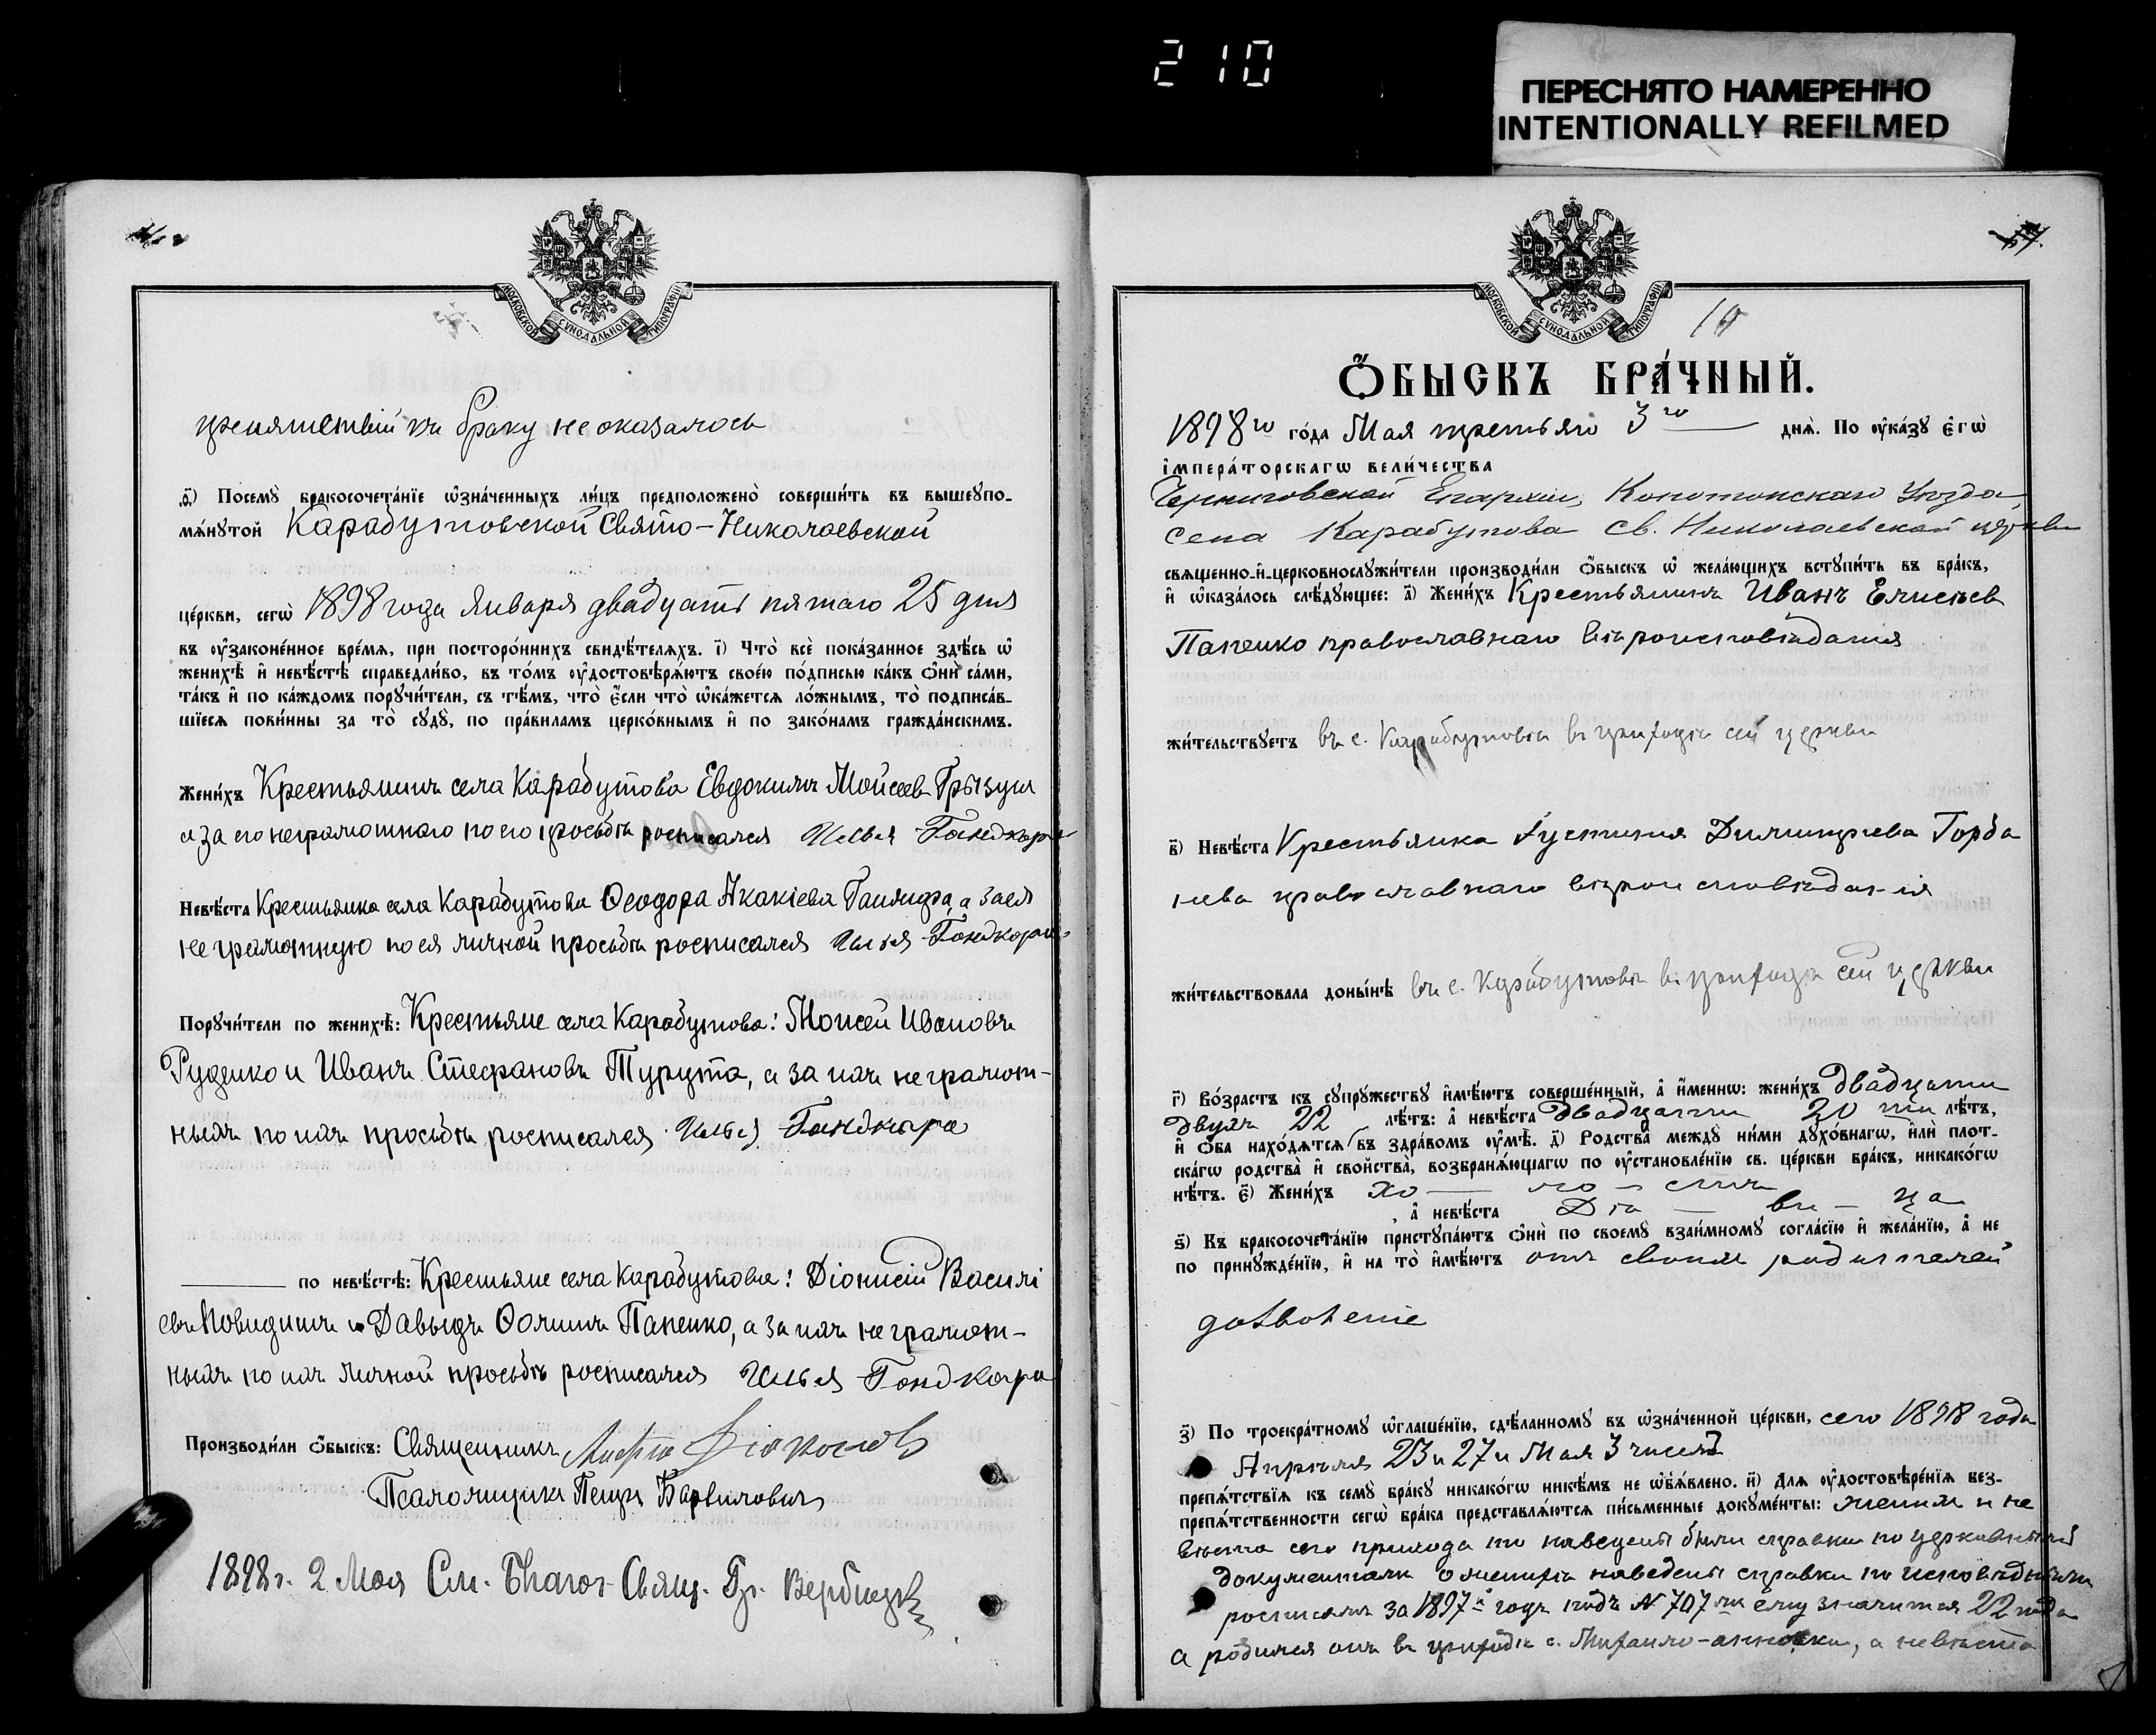 210
ПЕРЕСНЯТО НАМЕРЕННО
INTENTIONALLY REFILMED
МОСКОВСКОЙ СѴНОДАЛЬНОЙ ТИПОГРАФІИ
препятствій къ браку не оказалось
ѳ҃) Посемꙋ̀ бракосочета́нїе ѡ҆зна́ченныхъ ли́цъ предположено̀ соверши́ть въ вышеꙋпо-
мѧ́нꙋтой Карабутовской Свято-Николаевской
це́ркви, сегѡ̀ 1898 года Января двадцать пятаго 25 дня
въ ᲂу҆законе́нное вре́мѧ, при посторо́ннихъ свидѣ́телѧхъ. і҃) Что̀ всѐ пока́занное здѣ́сь ѡ҆
женихѣ̀ и҆ невѣ́стѣ справедли́во, въ то́мъ ᲂу҆достовѣрѧ́ютъ свое́ю по́дписью ка́къ ѻ҆нѝ са́ми,
та́къ и҆ по ка́ждомъ порꙋчи́тели, съ тѣ́мъ, что̀ є҆́сли что̀ ѡ҆ка́жетсѧ ло́жнымъ, то̀ подписа́в-
шїесѧ пови́нны за то̀ сꙋдꙋ̀, по пра́виламъ церко́внымъ и҆ по зако́намъ гражда́нскимъ.
Жени́хъ Крестьянинъ села Карабутова Евдокимъ Моисеевъ Грызун
а за его неграмотнаго по его просьбѣ росписался Илья Гонджара
Невѣ́ста Крестьянка села Карабутова Ѳеодора Акакіева, а за ея
неграмотную по ея личной просьбѣ росписался Илья Гонджара
Порꙋчи́тели по женихѣ̀: Крестьяне села Карабутова: Моисей Ивановъ
Руденко и Иванъ Стефановъ Турута, а за ихъ неграмот-
ныхъ по ихъ просьбѣ росписался Илья Гонджара
по невѣ́стѣ: Крестьяне села Карабутова: Діонисій Василі
евъ и Давыдъ Ѳоминъ Папенко, а за ихъ неграмот-
ныхъ по ихъ личной просьбѣ росписался Илья Гонджара
Производи́ли ѻ҆́быскъ: Священникъ
Псаломщикъ Петръ Барвиловичъ
1898 г. 2 Мая См. Благоч. Свящ. Гр. Вербицкій
МОСКОВСКОЙ СѴНОДАЛЬНОЙ ТИПОГРАФІИ
Ѻ҆́БЫСКЪ БРА́ЧНЫЙ.
1898го го́да Мая третьяго 3го днѧ̀. По ᲂу҆ка́зꙋ є҆гѡ̀
і҆мпера́торскагѡ вели́чества
Черниговской Епархіи, Конотопскаго Уѣзда
села Карабутова Св. Николаевской церкви
свѧщенно-и҆-церковнослꙋжи́тели производи́ли ѻ҆́быскъ ѡ҆ жела́ющихъ встꙋпи́ть въ бра́къ,
и҆ ѡ҆каза́лось слѣ́дꙋющее: а҃) Жени́хъ Крестьянинъ Иванъ Елисѣев
Папенко православнаго вѣроисповѣданія
жи́тельствꙋетъ въ с. Карабутовѣ въ приходѣ сей церкви
в҃) Невѣ́ста Крестьянка Іустинія Димитріева Горба
нева православнаго вѣроисповѣданія
жи́тельствовала доны́нѣ въ с. Карабутовѣ въ приходѣ сей церкви
г҃) Во́зрастъ къ сꙋпрꙋ́жествꙋ и҆мѣ́ютъ соверше́нный, а҆ и҆́меннѡ: жени́хъ двадцати
двухъ 22 лѣ́тъ: а҆ невѣ́ста двадцати 20 ти лѣ́тъ,
и҆ ѻ҆́ба нахо́дѧтсѧ въ здра́вомъ ᲂу҆мѣ̀. д҃) Родства̀ междꙋ̀ ни́ми дꙋхо́внагѡ, и҆лѝ пло́т-
скагѡ родства̀ и҆ сво́йства̀, возбранѧ́ющагѡ по ᲂу҆становле́нїю св. це́ркви бра́къ, никако́гѡ
нѣ́тъ. є҃) Жени́хъ хо — ло — стъ
, а҆ невѣ́ста Дѣ — ви — ца
ѕ҃) Къ бракосочета́нїю приступа́ютъ ѻ҆нѝ по своемꙋ̀ взаи́мномꙋ согла́сїю и҆ жела́нїю, а҆ не
по принꙋжде́нїю, и҆ на то̀ и҆мѣ́ютъ отъ своихъ родителей
дозволеніе
з҃) По троекра́тномꙋ ѡ҆глаше́нїю, сдѣ́ланномꙋ въ ѡ҆зна́ченной це́ркви, сего 1898 года
Апрѣля 23 и 27 и Мая 3 чиселъ
препѧ́тствїѧ къ семꙋ̀ бра́кꙋ никако́гѡ никѣ́мъ не ѡ҆б̾ѧ́влено. и҃) Длѧ ᲂу҆достовѣре́нїѧ без-
препѧ́тственности сегѡ̀ бра́ка представлѧ́ютсѧ пи́сьменные докꙋме́нты: женихъ и не
вѣста сего прихода то наведены были справки по церковнымъ
документамъ о женихѣ наведены справки по исповѣднымъ
росписямъ за 1897й годъ подъ № 707мъ ему значится 22 года
а родился онъ въ приходѣ с. Михайло-анновки, а невѣста